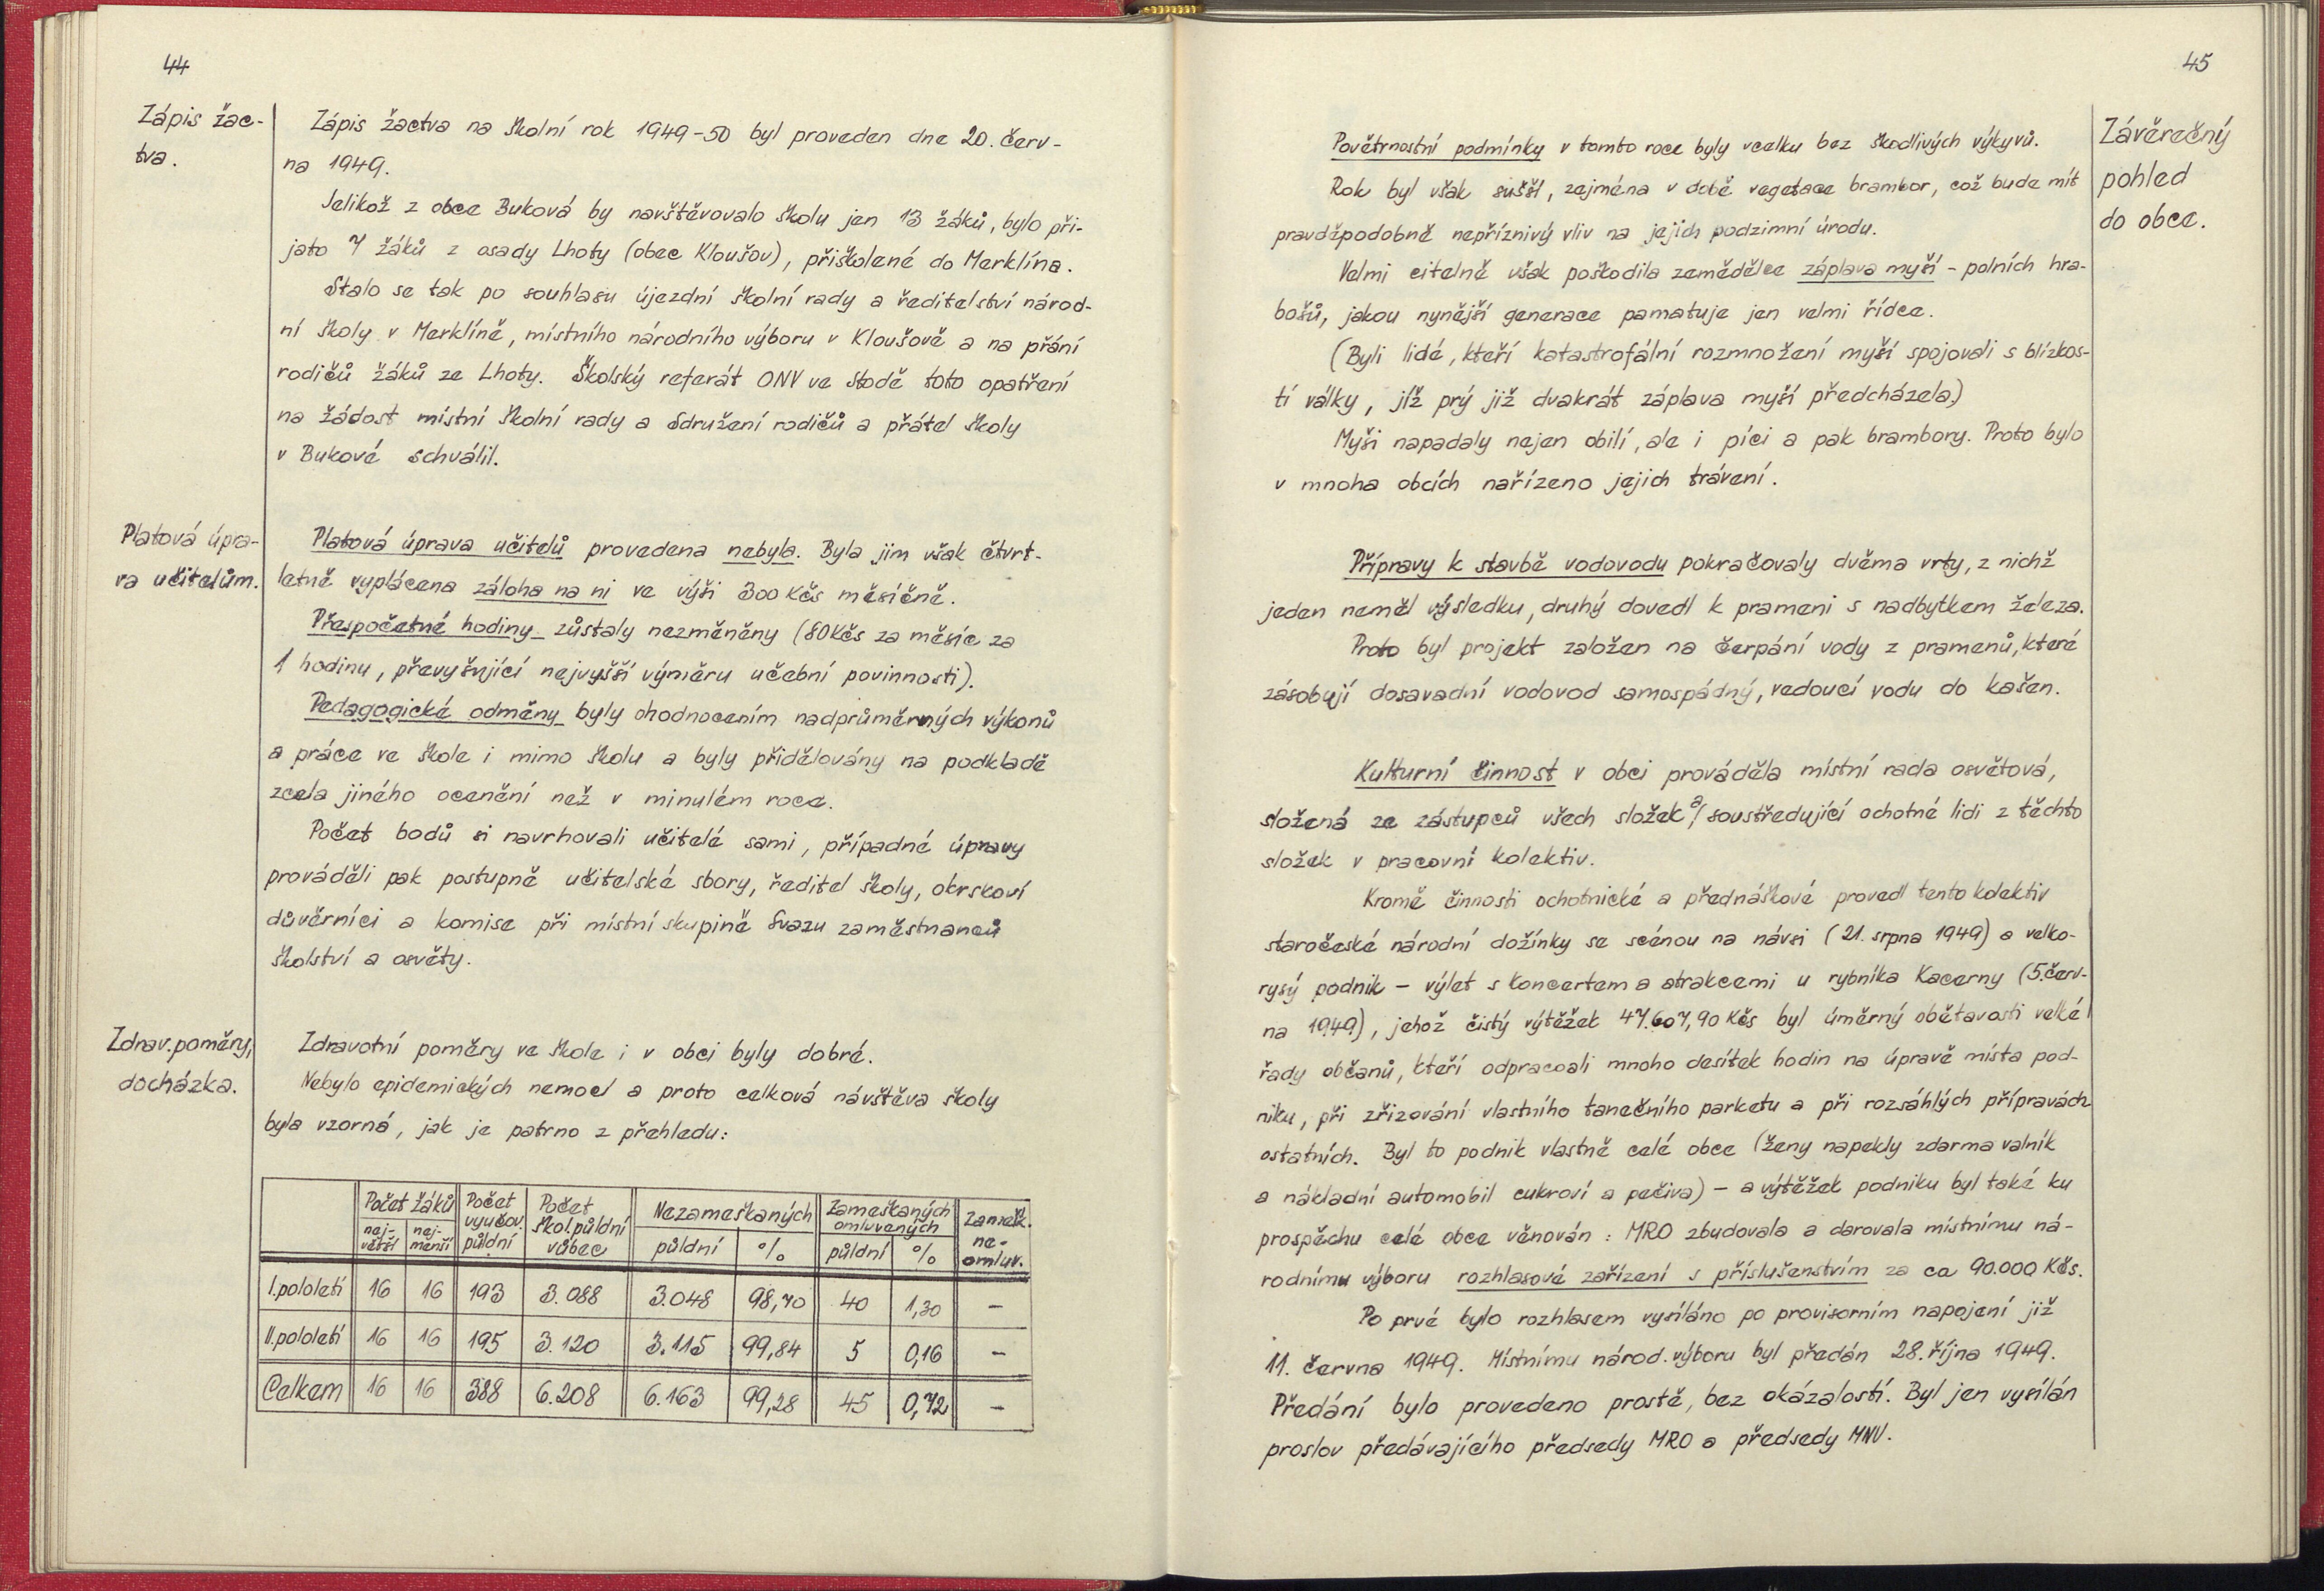 44
Zápis žac-
tva.
Zápis žactva na školní rok 1949-50 byl proveden dne 20. červ-
na 1949.
Jelikož z obce Buková by navštěvovalo školu jen 13 žáků, bylo při-
jato 7 žáků z osady Lhoty (obec Kloušov), přiškolené do Merklína.
Stalo se tak po souhlasu újezdní školní rady a ředitelství národ-
ní školy v Merklíně, místního národního výboru v Kloušově a na přání
rodičů žáků ze Lhoty. Školský referát ONV ve Stodě toto opatření
na žádost místní školní rady a Sdružení rodičů a přátel školy
v Bukové schválil.
Platová úpra-
va učitelům.
Platová úprava učitelů provedena nebyla. Byla jim však čtvrt-
letně vyplácena záloha na ni ve výši 300 Kčs měsíčně.
Přespočetné hodiny zůstaly nezměněny (80 Kčs za měsíc za
1 hodinu, převyšující nejvyšší výměru učební povinnosti).
Pedagogické odměny byly ohodnocením nadprůměrných výkonů
a práce ve škole i mimo školu a byly přidělovány na podkladě
zcela jiného ocenění než v minulém roce.
Počet bodů si navrhovali učitelé sami, případné úpravy
prováděli pak postupně učitelské sbory, ředitel školy, okrskoví
důvěrníci a komise při místní skupině Svazu zaměstnanců
školství a osvěty.
Zdrav. poměry,
docházka.
Zdravotní poměry ve škole i v obci byly dobré.
Nebylo epidemických nemocí a proto celková návštěva školy
byla vzorná, jak je patrno z přehledu:
Počet žáků Počet vyučov. půldní Počet škol. půldní vůbec Nezameškaných Zameškaných omluvených Zamešk. ne- omluv.
nej- větší nej- menší půldní % půldní %
I. pololetí 16 16 193 3.088 3.048 98,70 40 1,30 —
II. pololetí 16 16 195 3.120 3.115 99,84 5 0,16 —
Celkem 16 16 388 6.208 6.163 99,28 45 0,72 —
45
Závěrečný
pohled
do obce.
Povětrnostní podmínky v tomto roce byly vcelku bez škodlivých výkyvů.
Rok byl však sušší, zejména v době vegetace brambor, což bude mít
pravděpodobně nepříznivý vliv na jejich podzimní úrodu.
Velmi citelně však poškodila zemědělce záplava myší - polních hra-
bošů, jakou nynější generace pamatuje jen velmi řídce.
(Byli lidé, kteří katastrofální rozmnožení myší spojovali s blízkos-
tí války, jíž prý již dvakrát záplava myší předcházela.)
Myši napadaly nejen obilí, ale i píci a pak brambory. Proto bylo
v mnoha obcích nařízeno jejich trávení.
Přípravy k stavbě vodovodu pokračovaly dvěma vrty, z nichž
jeden neměl výsledku, druhý dovedl k prameni s nadbytkem železa.
Proto byl projekt založen na čerpání vody z pramenů, které
zásobují dosavadní vodovod samospádný, vedoucí vodu do kašen.
Kulturní činnost v obci prováděla místní rada osvětová,
složená ze zástupců všech složek a soustředující ochotné lidi z těchto
složek v pracovní kolektiv.
Kromě činnosti ochotnické a přednáškové provedl tento kolektiv
staročeské národní dožínky se scénou na návsi (21. srpna 1949) a velko-
rysý podnik - výlet s koncertem a atrakcemi u rybníka Kacerny (5. červ-
na 1949), jehož čistý výtěžek 47.607,90 Kčs byl úměrný obětavosti velké
řady občanů, kteří odpracoali mnoho desítek hodin na úpravě místa pod-
niku, při zřizování vlastního tanečního parketu a při rozsáhlých přípravách
ostatních. Byl to podnik vlastně celé obce (ženy napekly zdarma valník
a nákladní automobil cukroví a pečiva) - a výtěžek podniku byl také ku
prospěchu celé obce věnován: MRO zbudovala a darovala místnímu ná-
rodnímu výboru rozhlasové zařízení s příslušenstvím za ca 90.000 Kčs.
Po prvé bylo rozhlasem vysíláno po provisorním napojení již
11. června 1949. Místnímu národ. výboru byl předán 28. října 1949.
Předání bylo provedeno prostě, bez okázalostí. Byl jen vysílán
proslov předávajícího předsedy MRO a předsedy MNV.